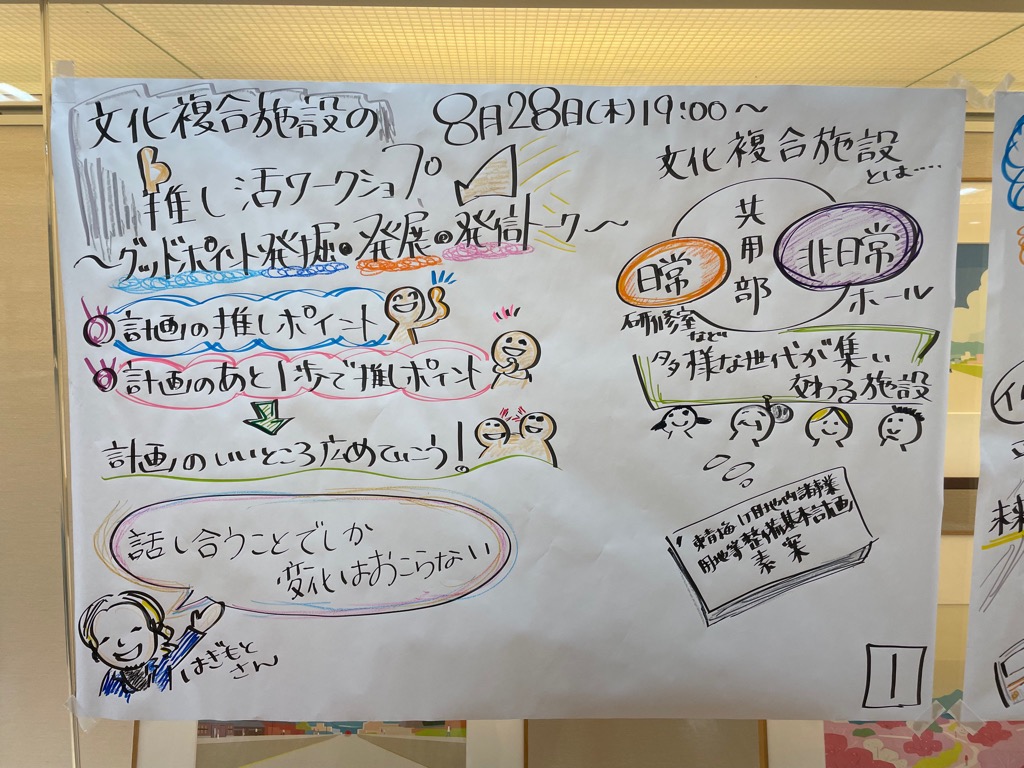 文化複合施設の
8月28日(木)19:00〜
推し活ワークショップ
〜グッドポイント発掘・発展・発信トーク〜
◎計画の推しポイント
◎計画のあと1歩で推しポイント
計画のいいところ広めていこう!
話し合うことでしか
変化はおこらない
はぎもと
さん
文化複合施設
とは....
共用部
日常
非日常
研修室
など
ホール
多様な世代が集い
交わる施設
東青梅1丁目地内諸事業
用地等整備基本計画
素案
1
未